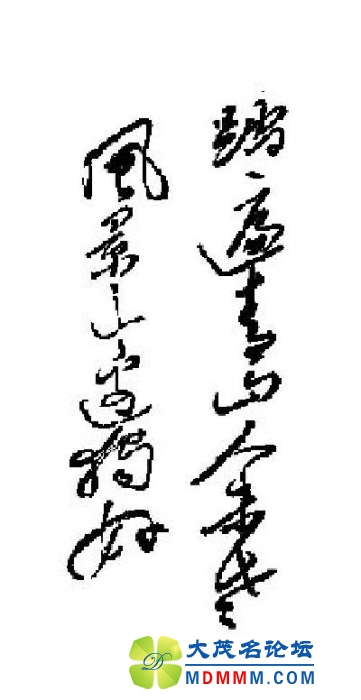 踏遍青山人未老
風景這邊獨好
大茂名论坛
MDMMM.COM
D